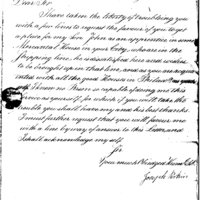 Dear Sir
I have taken the liberty of troubling you
with a few lines to request the favour of you to get
a place for my Son John as an apprentice in some
Mercantile House in your City, who are in the
Shipping line, he is a studied lad and wishes
to be brought up in that line, and as you are acquain
ted with all the good Houses in
I know no Person so capable of doing me this
as yourself, for which if you will take the
trouble you shall have my and his best thanks
I must further request that you will favour me
with a line by way of answer to this Letter, and
I shall acknowledge myself
Sir
Your most Obliged Humble St
Joseph